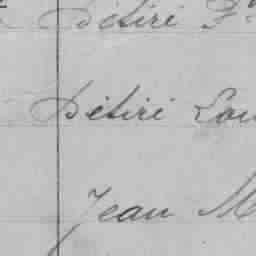 Désiré F
Désiré Lou
Jean M